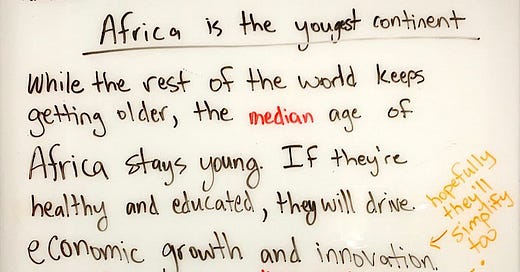 Africa is the yougest continent
While the rest of the world keeps
getting older, the median age of
Africa stays young. If they're
healthy and educated, they will drive
economic growth and innovation.
← hopefully
they'll
simplify
too